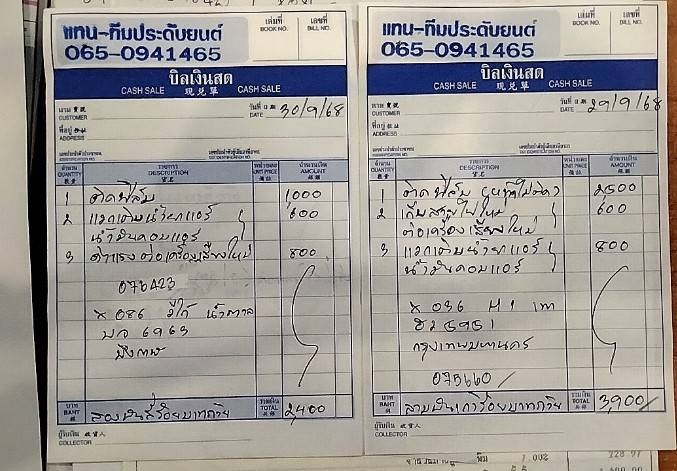 แทน-ทีมประดับยนต์
065-0941465
เล่มที่ BOOK NO.
เลขที่ BILL NO.
บิลเงินสด
CASH SALE 現兌單 CASH SALE
นาม
CUSTOMER
วันที่ DATE 30/9/68
ที่อยู่
ADDRESS
จำนวน QUANTITY รายการ DESCRIPTION หน่วยละ UNIT PRICE จำนวนเงิน AMOUNT
1 ติดฟิล์ม 1,000
2 แวคเติมน้ำยาแอร์ 600
น้ำมันคอมแอร์
3 ต่อเครื่องเสียงใหม่ 800
076423
x 086
6963
บาท BAHT สองพันสี่ร้อยบาทถ้วน รวมเงิน TOTAL 2,400
ผู้รับเงิน
COLLECTOR
แทน-ทีมประดับยนต์
065-0941465
เล่มที่ BOOK NO.
เลขที่ BILL NO.
บิลเงินสด
CASH SALE 現兌單 CASH SALE
นาม
CUSTOMER
วันที่ DATE 29/9/68
ที่อยู่
ADDRESS
จำนวน QUANTITY รายการ DESCRIPTION หน่วยละ UNIT PRICE จำนวนเงิน AMOUNT
1 ติดฟิล์ม 2500
2 เก็บสายไฟใหม่ 600
ต่อเครื่องเสียงใหม่
3 แวคเติมน้ำยาแอร์ 800
น้ำมันคอมแอร์
x 036 H1
5951
กรุงเทพมหานคร
075660
บาท BAHT สามพันเก้าร้อยบาทถ้วน รวมเงิน TOTAL 3,900
ผู้รับเงิน
COLLECTOR